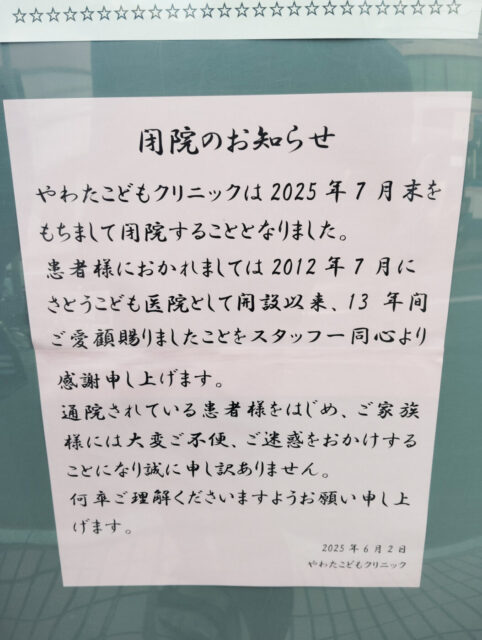 ☆☆☆☆☆☆☆☆☆☆☆☆☆☆☆☆☆☆☆☆☆☆☆☆☆☆☆☆☆☆
閉院のお知らせ
やわたこどもクリニックは2025年7月末を
もちまして閉院することとなりました。
患者様におかれましては2012年7月に
さとうこども医院として開設以来、13年間
ご愛顧賜りましたことをスタッフ一同心より
感謝申し上げます。
通院されている患者様をはじめ、ご家族
様には大変ご不便、ご迷惑をおかけする
ことになり誠に申し訳ありません。
何卒ご理解くださいますようお願い申し上
げます。
2025年6月2日
やわたこどもクリニック